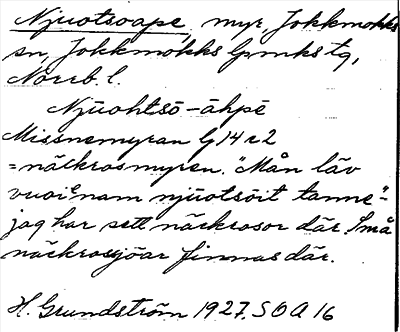 Njuotsoape, myr, Jokkmokks
sn, Jokkmokks lpmks tg,
Norrb. l.
Njūohtsō-āhpē
Missnemyran G14 r2
=näckrosmyren. "Mån läv
vuoiᵉnam njūotsōit tanne"-
jag har sett näckrosor där. Små
näckrossjöar finnas där.
H. Grundström 1927. SOA 16